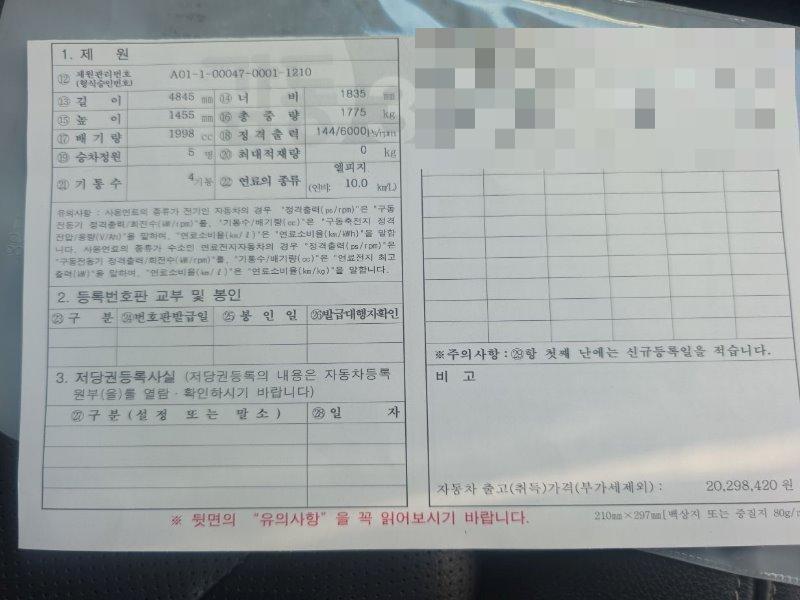 1. 제 원
⑫ 제원관리번호 (형식승인번호) A01-1-00047-0001-1210
⑬ 길 이 4845 mm ⑭ 너 비 1835 mm
⑮ 높 이 1455 mm ⑯ 총 중 량 1775 kg
⑰ 배 기 량 1998 cc ⑱ 정 격 출 력 144/6000 ps/rpm
⑲ 승차정원 5 명 ⑳ 최대적재량 0 kg
㉑ 기 통 수 4 기통 ㉒ 연료의 종류 엘피지
(연비: 10.0 km/L)
유의사항 : 사용연료의 종류가 전기인 자동차의 경우 "정격출력(ps/rpm)"은 "구동
전동기 정격출력/회전수(kW/rpm)"를, "기통수/배기량(cc)"은 "구동축전지 정격
전압/용량(V/Ah)"을 말하며, "연료소비율(km/ℓ)"은 "연료소비율(km/kWh)"을 말합
니다. 사용연료의 종류가 수소인 연료전지자동차의 경우 "정격출력(ps/rpm)"은
"구동전동기 정격출력/회전수(kW/rpm)"를, "기통수/배기량(cc)"은 "연료전지 최고
출력(kW)"을 말하며, "연료소비율(km/ℓ)"은 "연료소비율(km/kg)"을 말합니다.
2. 등록번호판 교부 및 봉인
㉓ 구 분 ㉔번호판발급일 ㉕ 봉 인 일 ㉖발급대행자확인
3. 저당권등록사실 (저당권등록의 내용은 자동차등록
원부(을)를 열람ㆍ확인하시기 바랍니다)
㉗구 분 (설 정 또 는 말 소) ㉘ 일 자
※ 뒷면의 "유의사항"을 꼭 읽어보시기 바랍니다.
※주의사항:㉙항 첫째 난에는 신규등록일을 적습니다.
비 고
자동차 출고(취득)가격(부가세제외) : 20,298,420 원
210mm×297mm[백상지 또는 중질지 80g/